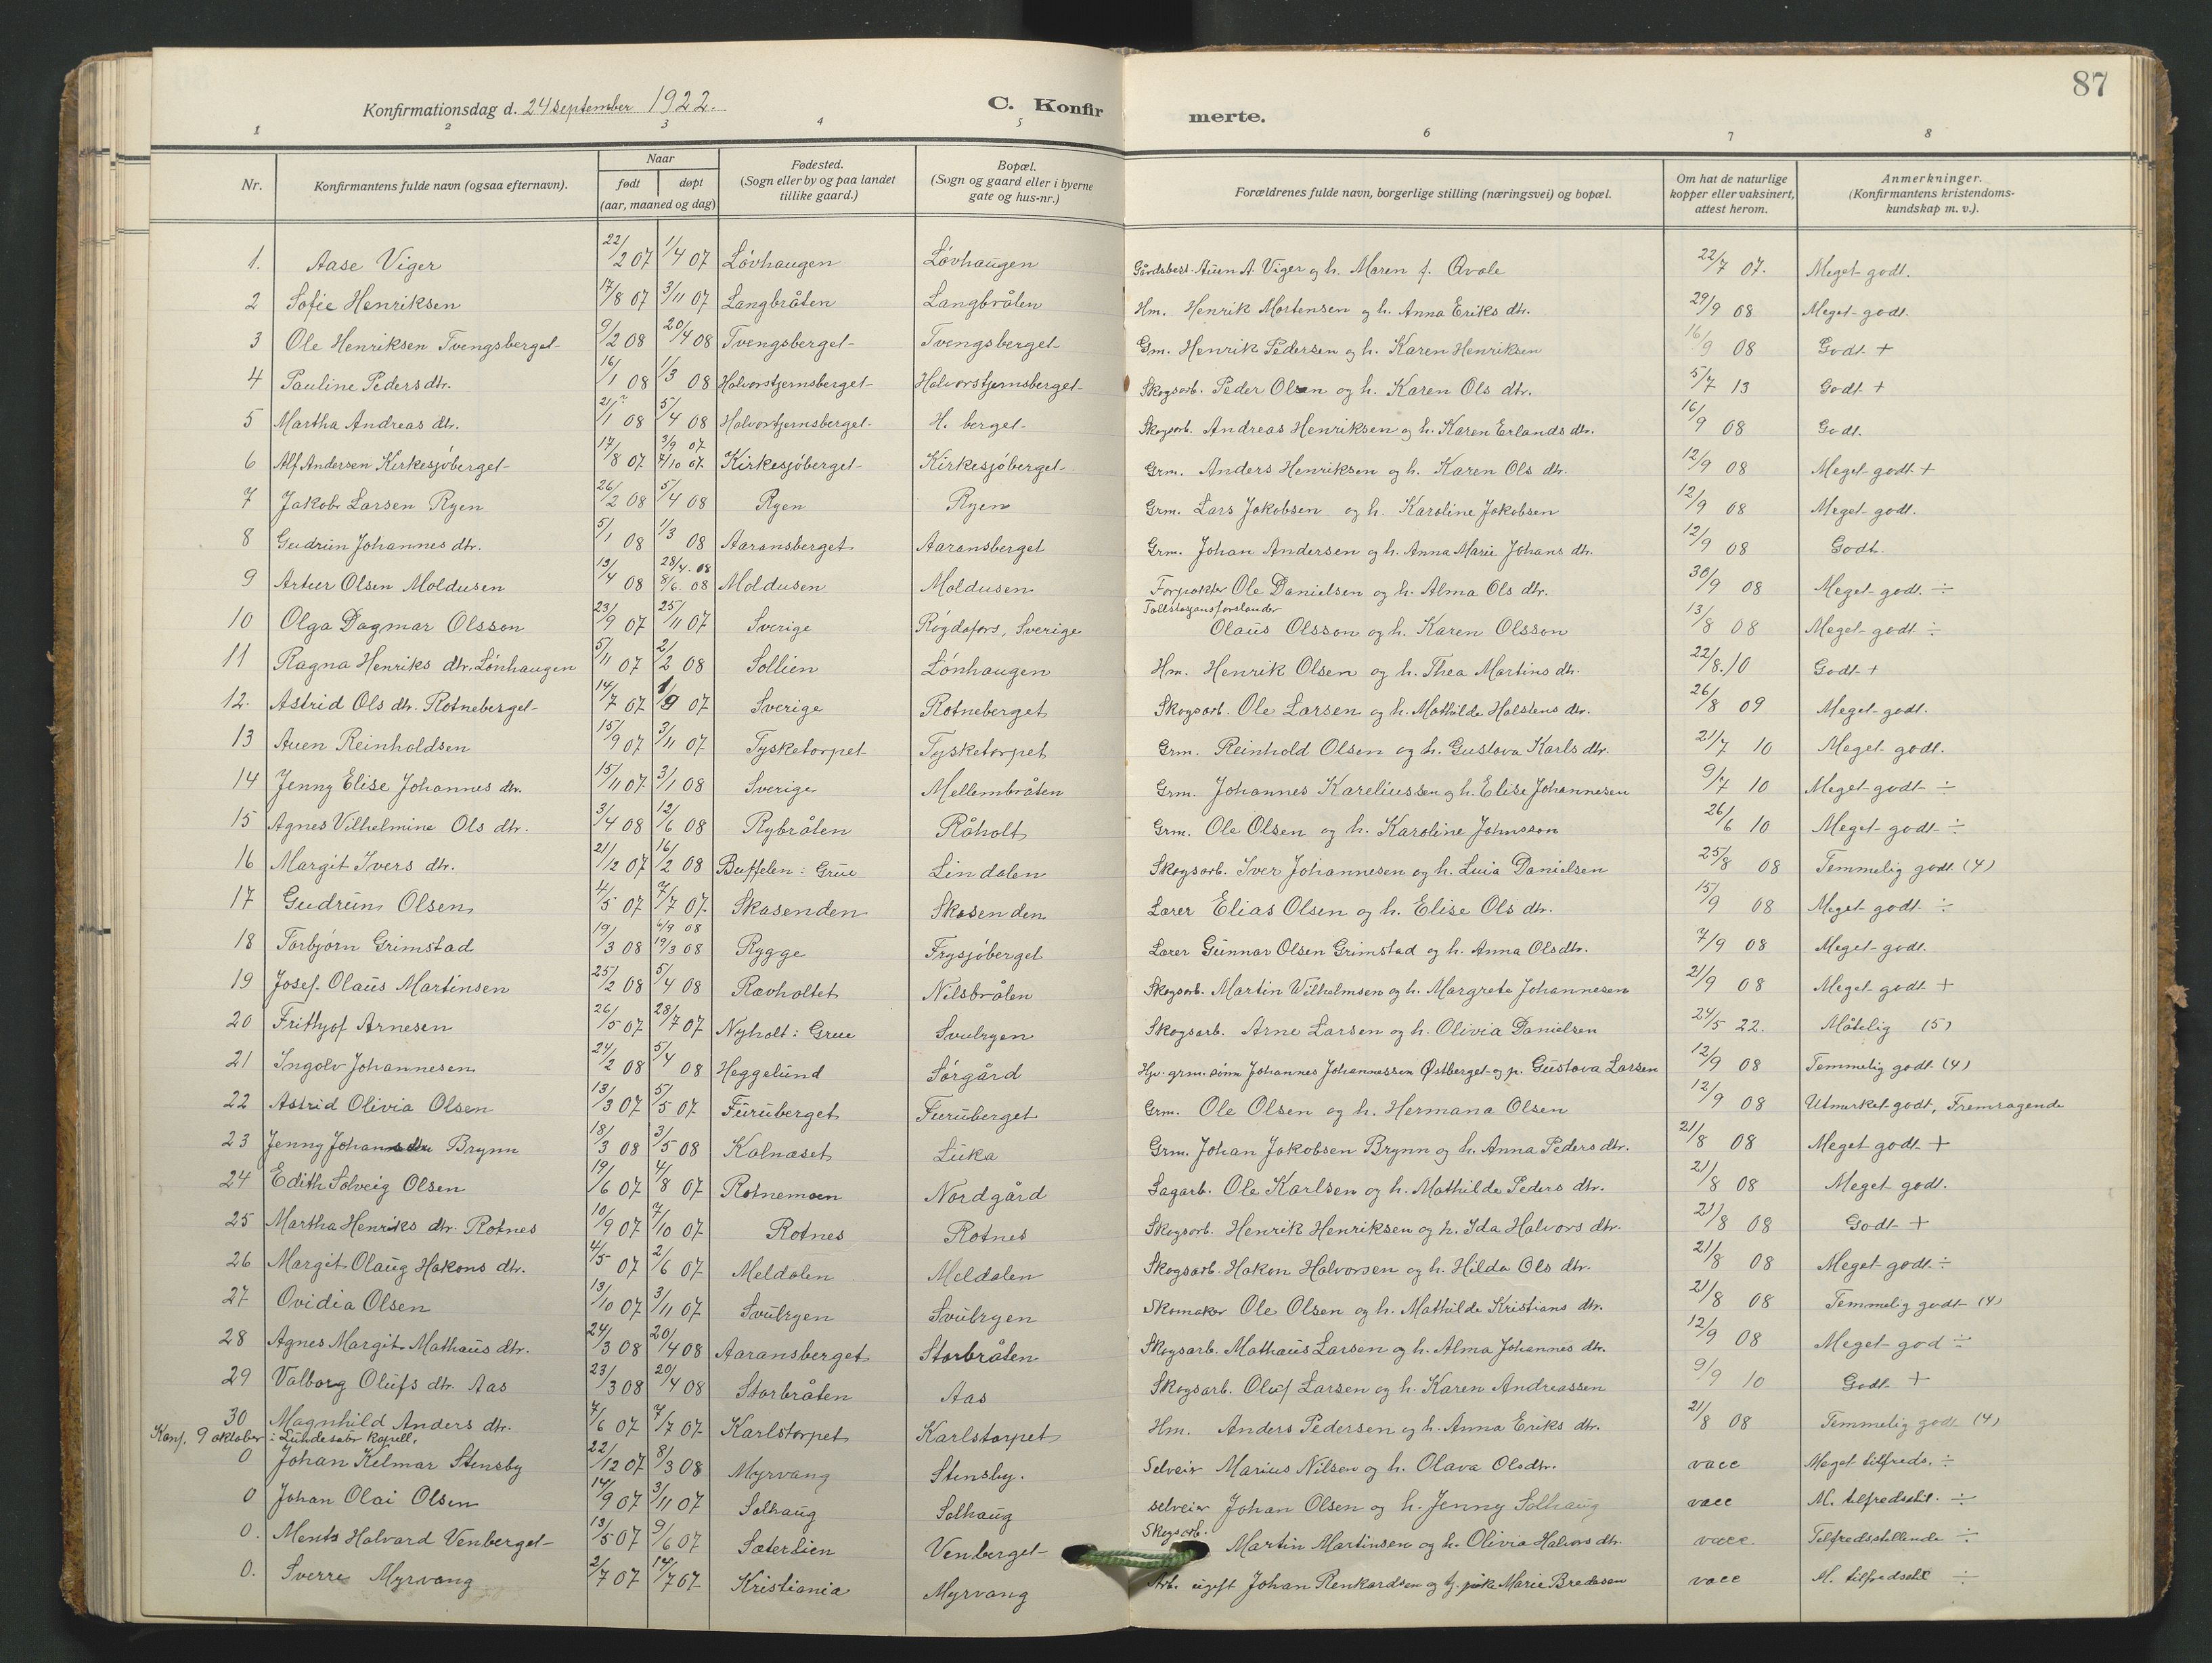 87
Konfirmationsdag d. 24 september 1922.
C. Konfirmerte.
1 2 3 4 5 6 7 8
Nr. | Konfirmantens fulde navn (ogsaa efternavn). | Naar født | døpt (aar, maaned og dag) | Fødested. (Sogn eller by og paa landet tillike gaard.) | Bopæl. (Sogn og gaard eller i byerne gate og hus-nr.) | Forældrenes fulde navn, borgerlige stilling (næringsvei) og bopæl. | Om hat de naturlige kopper eller vaksinert, attest herom. | Anmerkninger. (Konfirmantens kristendomskundskap m. v.).
1. Aase Viger 22/2 07 1/4 07 Lövhaugen Lövhaugen Gårdsbest. Auen A. Viger og h. Maren f. Qvale 22/7 07. Meget godt.
2 Sofie Henriksen 17/8 07 3/11 07 Langbråten Langbråten Hm. Henrik Mortensen og h. Anna Eriks dtr. 29/9 08 Meget godt.
3 Ole Henriksen Tvengsberget 9/2 08 20/4 08 Tvengsberget Tvengsberget Gm. Henrik Pedersen og h. Karen Henriksen 16/9 08 Godt +
4 Pauline Peders dtr. 16/1 08 1/3 08 Halvorstjernsberget Halvorstjernsberget Skogsarb. Peder Olsen og h. Karen Ols dtr. 5/7 13 Godt +
5 Martha Andreas dtr. 21/1 08 5/4 08 Halvortjernsberget H. berget Skogsarb. Andreas Henriksen og h. Karen Erlands dtr. 16/9 08 Godt.
6 Alf Andersen Kirkesjöberget 17/8 07 3/9 07 7/10 07. Kirkesjöberget Kirkesjöberget Grm. Anders Henriksen og h. Karen Ols dtr. 12/9 08 Meget godt +
7 Jakob Larsen Ryen 26/2 08 5/4 08 Ryen Ryen Grm. Lars Jakobsen og h. Karoline Jakobsen 12/9 08 Meget godt.
8 Gudrun Johannes dtr. 5/1 08 1/3 08 Aaransberget Aaransberget Grm. Johan Andersen og h. Anna Marie Johans dtr. 12/9 08 Godt.
9 Artur Olsen Moldusen 13/4 08 28/4. 08 8/6. 08 Moldusen Moldusen Forpakter Ole Danielsen og h. Alma Ols dtr. 30/9 08 Meget godt. ÷
10 Olga Dagmar Olsson 23/9 07 25/11 07 Sverige Rögdafors, Sverige Tollstasjonsforstander Olaus Olsson og h. Karen Olsson 13/8 08 Meget godt ÷
11 Ragna Henriks dtr. Lönhaugen 5/11 07 2/2 08 Sollien Lönhaugen Hm. Henrik Olsen og h. Thea Martins dtr. 22/8. 10 Godt +
12. Astrid Ols dtr. Rotneberget 14/7 07 1/9 07 Sverige Rotneberget Skogsarb. Ole Larsen og h. Mathilde Halstens dtr. 26/8 09 Meget godt.
13 Auen Reinholdsen 15/9 07 3/11 07 Tysketorpet Tysketorpet Grm. Reinhold Olsen og h. Gustava Karls dtr. 21/7 10 Meget godt.
14 Jenny Elise Johannes dtr. 15/11 07 3/1 08 Sverige Mellembråten Grm. Johannes Kareliussen og h. Elise Johannesen 9/7 10 Meget godt ÷
15 Agnes Vilhelmine Ols dtr. 3/4 08 12/6 08 Rybråten Råholt Grm. Ole Olsen og h. Karoline Johnsson 26/6 10 Meget godt ÷
16 Margit Ivers dtr. 21/12 07 16/2 08 Buffelen i Grue Lindalen Skogsarb. Iver Johannesen og h. Luia Danielsen 25/8 08 Temmelig godt (4)
17 Gudrun Olsen 4/5 07 7/7 07. Skasenden Skasenden Lærer Elias Olsen og h. Elise Ols dtr. 15/9 08 Meget godt ÷
18 Torbjørn Grimstad 19/3 08 6/9 08 19/3 08 Rygge Frysjöberget Lærer Gunnar Olsen Grimstad og h. Anna Olsdtr. 7/9 08 Meget godt
19 Josef Olaus Martinsen 25/2 08 5/4 08 Rævholtet Nilsbråten Skogsarb. Martin Wilhelmsen og h. Margrete Johannesen 21/9 08 Meget godt +
20 Frithjof Arnesen 26/5 07 28/7 07 Nyholt i Grue Svulryen Skogsarb. Arne Larsen og h. Olivia Danielsen 24/5 22. Måtelig (5)
21 Ingolv Johannesen 24/2 08 5/4 08 Heggelund Sørgård Hjv. grm. sönn Johannes Johannessen Østberget og p. Gustava Larsen 12/9 08 Temmelig godt (4)
22 Astrid Olivia Olsen 13/3 07 5/5 07 Furuberget Furuberget Grm. Ole Olsen og h. Hermana Olsen 12/9 08 Utmerket godt, Fremragende
23 Jenny Johansdtr Brynn 18/3 08 3/5 08 Kalnæset Luka Grm. Johan Jakobsen Brynn og h. Anna Peders dtr. 21/8 08 Meget godt +
24 Edith Solveig Olsen 19/6 07 4/8 07 Rotnemoen Nordgård Sagarb. Ole Karlsen og h. Mathilde Peders dtr. 21/8 08 Meget godt.
25 Martha Henriks dtr. Rotnes 10/9 07 7/10 07. Rotnes Rotnes Skogsarb. Henrik Henriksen og h. Ida Halvors dtr. 21/8 08 Godt +
26 Margit Olaug Hakons dtr. 4/5 07 2/6 07 Meldalen Meldalen Skogsarb. Hakon Halvorsen og h. Hilda Ols dtr. 21/8 08 Meget godt ÷
27 Ovidia Olsen 13/10 07 3/11 07 Svulryen Svulryen Skomaker Ole Olsen og h. Mathilde Kristians dtr. 21/8 08 Temmelig godt (4)
28 Agnes Margit Mathæus dtr. 24/3 08 20/4 08 Aaransberget Storbråten Skogsarb. Mathæus Larsen og h. Alma Johannes dtr. 12/9 08 Meget god ÷
29 Valborg Olufs dtr. Aas 23/3 08 20/4 08 Storbråten Aas Skogsarb. Oluf Larsen og h. Karen Andreassen 9/9 10 Godt +
30 Magnhild Anders dtr. 7/6 07 7/7 07. Karlstorpet Karlstorpet Hm. Anders Pedersen og h. Anna Eriks dtr. 21/8 08 Temmelig godt (4)
Konf. 9 oktober i Lundesæter kapell.
0 Johan Kilmar Stensby 22/12 07 8/3 08 Myrvang Stensby. Selveir Marius Nilsen og h. Olava Olsdtr. vacc Meget tilfreds. ÷
0 Johan Olai Olsen 14/9 07 3/11 07 Solhaug Solhaug selveier Johan Olsen og h. Jenny Solhaug vacc M. tilfredsstil. ÷
0. Ments Halvard Venberget 13/5 07 9/6 07 Sæterlien Venberget Skogsarb. Martin Martinsen og h. Olivia Halvors dtr. vacc Tilfredsstillende ÷
0. Sverre Myrvang 2/7 07 14/7 07 Kristiania Myrvang Arb. ugift Johan Renkardsen og tj. pike Marie Bredesen vacc M. tilfredsst ÷